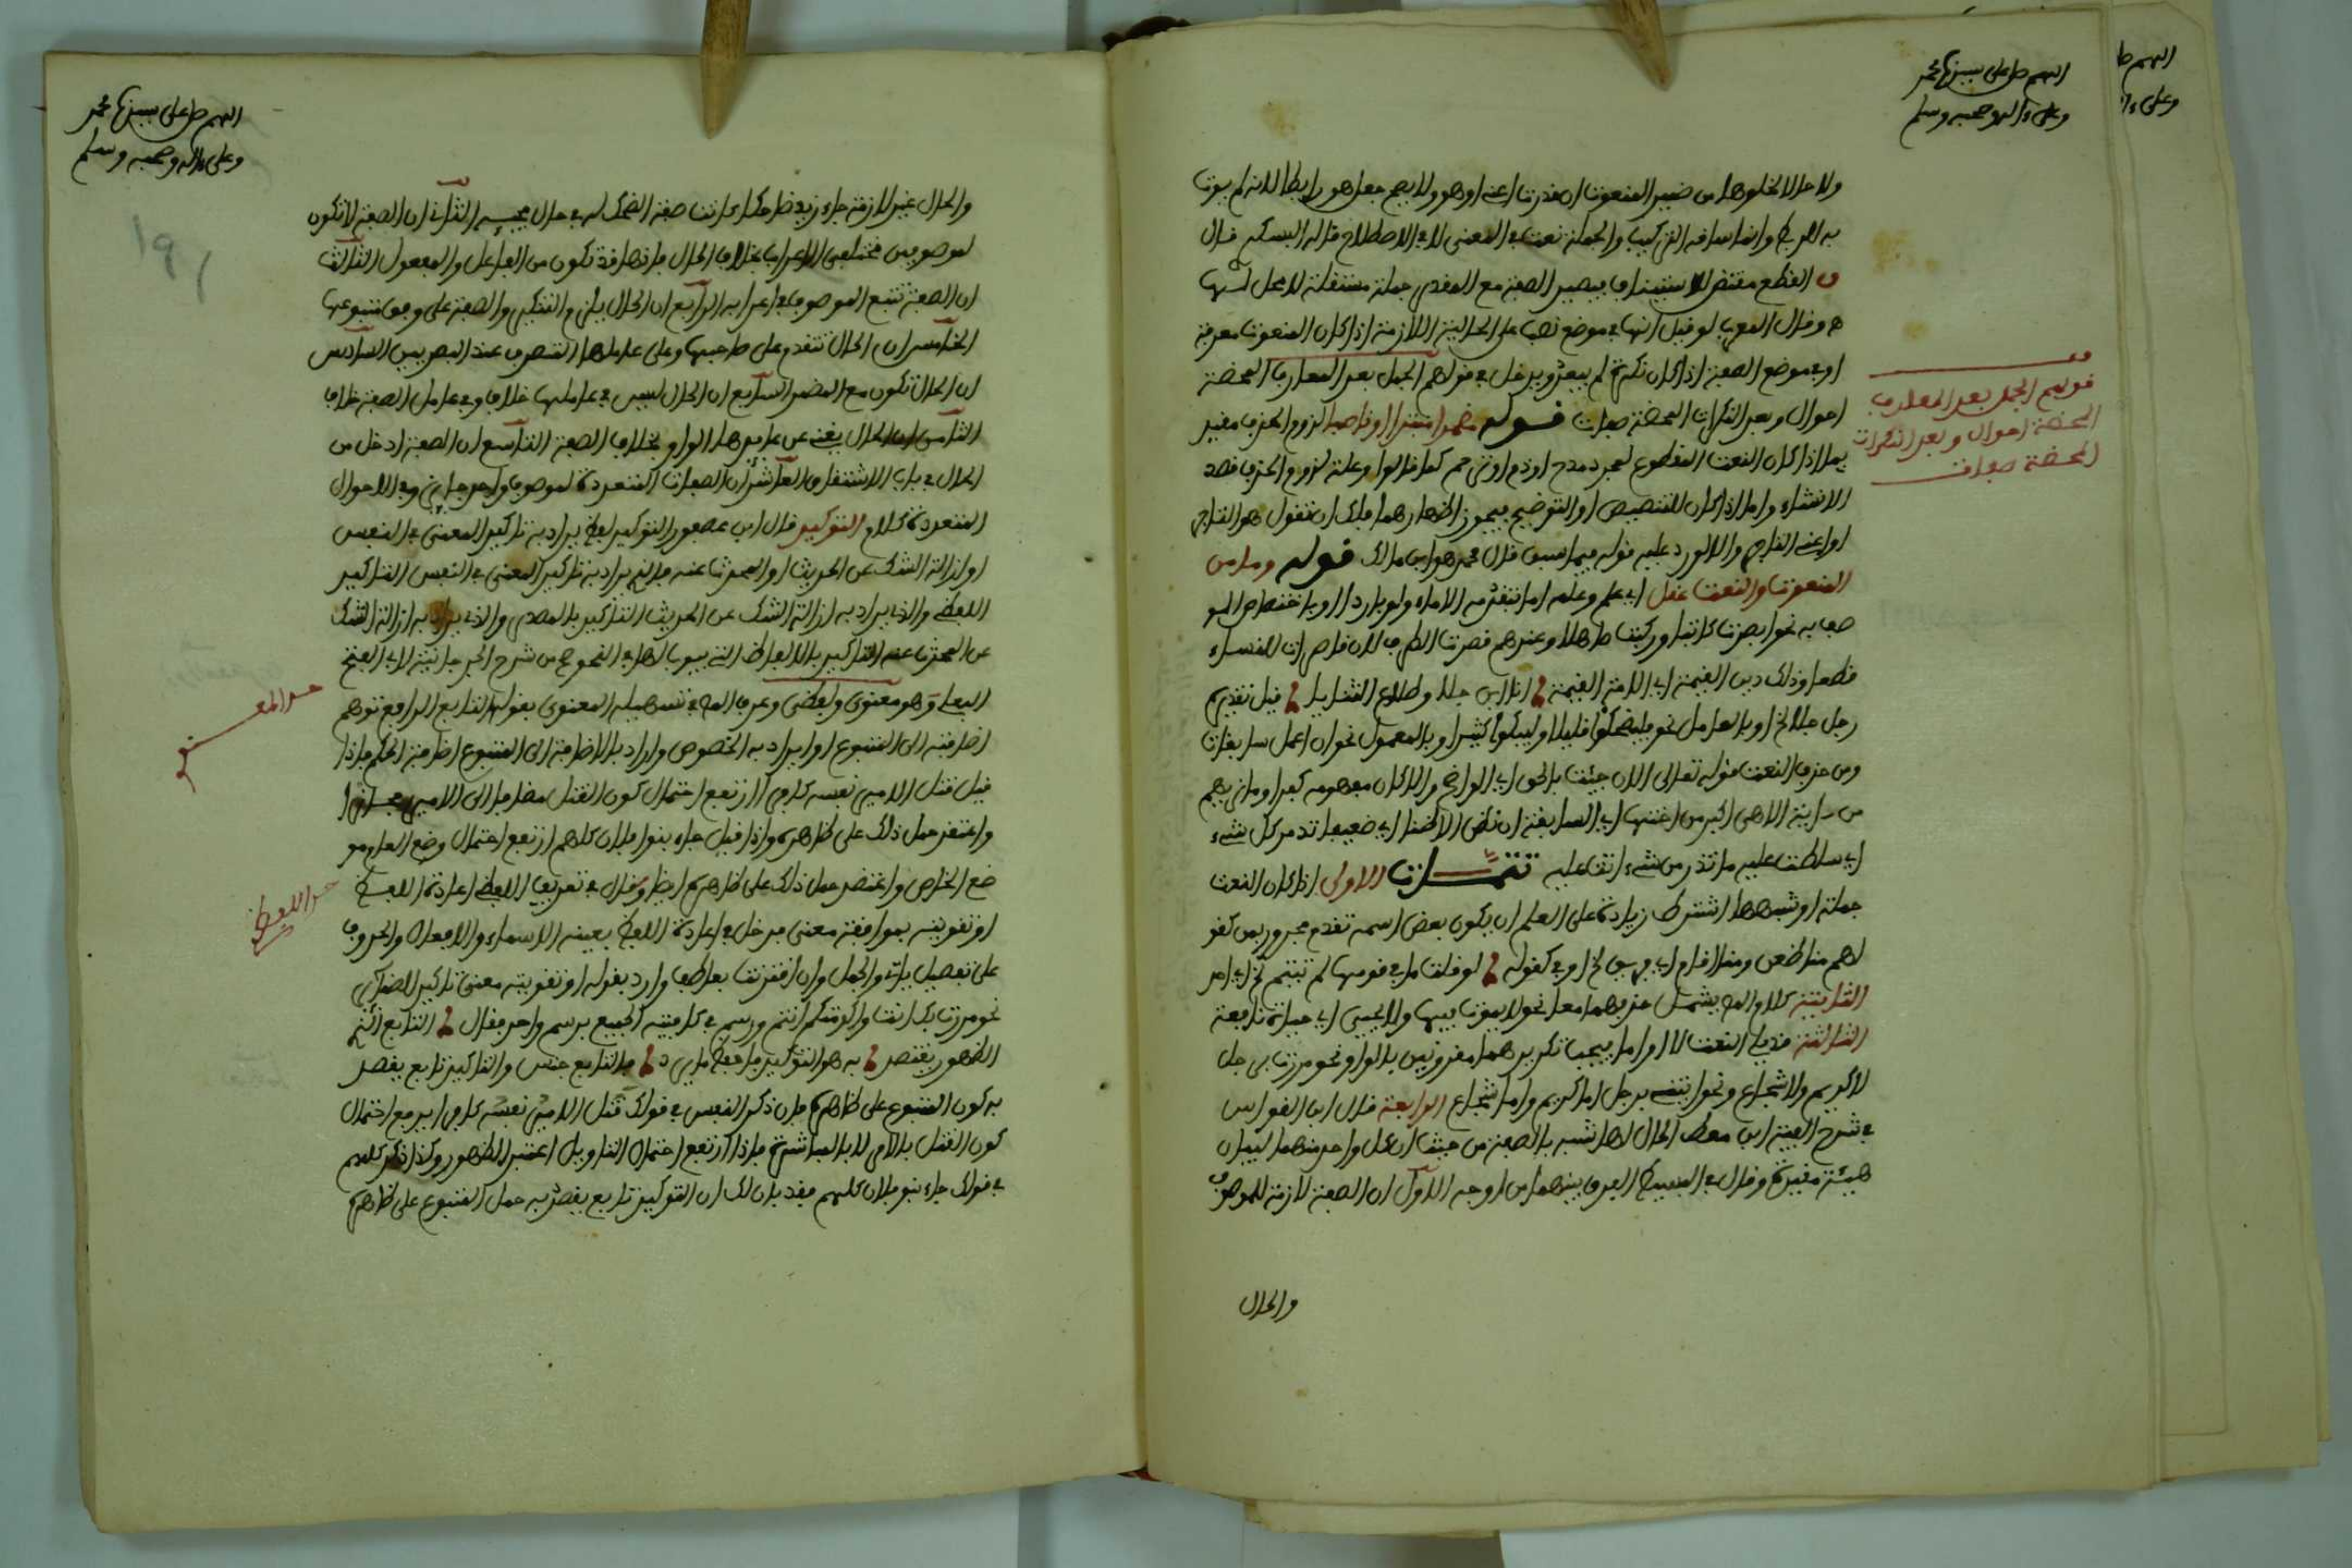 اللهم صل على سيدنا محمد
وعلى ءاله وصحبه وسلم
ولا حالا لخلوها من ضمير المنعوت ان قدرت اعنى او هو ولا يصح جعل هو رابطا لانه لم يوت
به للربط وانما ساقه التركيب والجملة نعت في المعنى لا في الاصطلاح قاله البسكري قال
القطع مقتض للاستيناف فيصير الصفة مع المقدر جملة مستقلة لا محل لها
وقال المعرب لو قيل انها في موضع نصب على الحالية اللازمة اذا كان المنعوت معرفة
او في موضع الصفة اذا كان نكرة لم يبعد ويدخل في قولهم الجمل بعد المعارف المحضة
احوال وبعد النكرات المحضة صفات قوله مضمرا مبتدا او ناصبا لزوم الحذف مقيد
بما اذا كان النعت المقطوع لمجرد مدح او ذم او ترحم كما قالوا وعلة لزوم الحذف قصد
الانشاء واما اذا كان للتخصيص او التوضيح فيجوز اظهارهما فلك ان تقول هو التاجر
او اعنى التاجر والا لورد عليه قوله فيما سبق قال محمد هو ابن مالك قوله وما من
المنعوت والنعت عقل اي علم وعلمه اما بتقدمه الاماء ولو باردا او باختصاص المو
صوف به نحو ابصرت كاتبا وركبت صاهلا وعندهم قصرت الطرف
قطعا وذلك دين القيمة اي الامة القيمة انا ابن جلا وطلاع الثنايا قيل تقديره
رجل جلا الخ او بالعامل نحو فليضحكوا قليلا وليبكوا كثيرا وبالمعمول نحو ان اعمل سابغات
ومن حذف النعت قوله تعالى الان جئت بالحق اي الواضح والا كان مفهومه كفرا وما نريهم
من ءاية الا هي اكبر من اختها اي السابقة ان نظن الا ظنا اي ضعيفا تدمر كل شيء
اي سلطت عليه ما تذر من شيء اتت عليه تتمات الاولى اذا كان النعت
جملة او شبهها اشترط زيادة على العلم ان يكون بعض اسم تقدم مجرور بمن كقو
لهم منا ظعن ومنا اقام اي فريق الخ او في كقوله لو قلت ما في قومها لم تيثم الخ اي احد
الثانية كلام المص يشمل حذفهما معا نحو لا يموت فيها ولا يحيى اي حياة نافعة
الثالثة قد يلي النعت لا او اما فيجب تكريرهما مقرونين بالواو نحو مررت برجل
لا كريم ولا شجاع ونحو ايتني برجل اما كريم واما شجاع الرابعة قال ابن القواس
في شرح الفية ابن معط الحال لها شبه بالصفة من حيث ان كل واحد منهما لبيان
هيئة مقيدة وقال في البسيط الفرق بينهما من اوجه الاول ان الصفة لازمة للموصوف
والحال
قولهم الجمل بعد المعارف
المحضة احوال وبعد النكرات
المحضة صفات
اللهم صل على سيدنا محمد
وعلى ءاله وصحبه وسلم
والحال غير لازمة جاء زيد ضاحكا كانت صفة الضحك له في حال مجيئه الثاني ان الصفة لا تكون
لموصوفين مختلفي الاعراب بخلاف الحال فانها قد تكون من الفاعل والمفعول الثالث
ان الصفة تتبع الموصوف في اعرابه الرابع ان الحال يلزم التنكير والصفة على وفق متبوعها
الخامس ان الحال تتقدم على صاحبها وعلى عاملها المتصرف عند البصريين السادس
ان الحال تكون مع المضمر السابع ان الحال ليس في عاملها خلاف وفي عامل الصفة خلاف
الثامن ان الحال يغنى عن عايدها الواو بخلاف الصفة التاسع ان الصفة ادخل من
الحال في باب الاشتقاق العاشر ان الصفات المتعددة لموصوف واحد جايز وفي الاحوال
المتعددة كلام التوكيد قال ابن عصفور التوكيد لفظ يراد به تاكيد المعنى في النفس
او ازالة الشك عن الحديث او المحدث عنه فالذي يراد به تاكيد المعنى في النفس التاكيد
اللفظي والذي يراد به ازالة الشك عن الحديث التاكيد بالمصدر والذي يراد به ازالة الشك
عن المحدث عنه التاكيد بالالفاظ التي يبوب لها في النحو من شرح الجرجانية لابي الفتح
البعلي وهو معنوي ولفظي وعرف المص في تسهيله المعنوي بقوله التابع الرافع توهم
اضافة الى المتبوع او ان يراد به الخصوص واراد بالاضافة الى المتبوع اضافة الحكم فاذا
قيل قتل الامير نفسه كافرا ارتفع احتمال كون القتل مضافا الى الامير مجازا
واعتقد حمل ذلك على ظاهره واذا قيل جاء بنوا فلان كلهم ارتفع احتمال وضع العام مو
ضع الخاص واعتقد حمل ذلك على ظاهره ايضا وقال في تعريف اللفظي اعادة اللفظ
او تقويته بموافقه معنى فدخل في اعادة اللفظ بعينه الاسماء والافعال والحروف
على تفصيل ياتي والجمل وان اقترنت بعاطف واراد بقوله او تقويته معنى تاكيد الضماير
نحو مررت بك انت واكرمتكم انتم ورسم في كافيته الجميع برسم واحد فقال التابع الذي
الظهور يقتصد به هو التوكيد فاحفظ ما يرد فالتابع جنس والتاكيد تابع يقصد
به كون المتبوع على ظاهره فان ذكر النفس في قولك قتل الامير نفسه كافرا يرفع احتمال
كون القتل بالامر لا بالمباشرة فاذا ارتفع احتمال التاويل اعتبر الظهور وكذا ذكر كلهم
في قولك جاء بنو فلان كلهم فقد بان لك ان التوكيد تابع يقصد به حمل المتبوع على ظاهره
حد المعنوي
حد اللفظي
١٩١